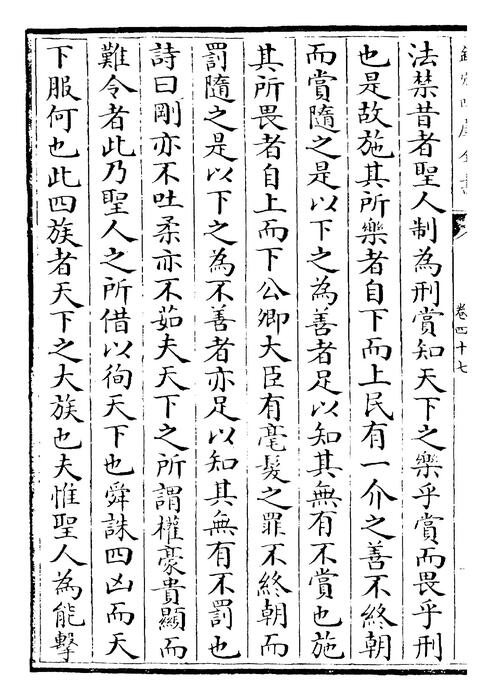 法禁昔者聖人制為刑賞知天下之樂乎賞而畏乎刑
也是故施其所樂者自下而上民有一介之善不終朝
而賞隨之是以下之為善者足以知其無有不賞也施
其所畏者自上而下公卿大臣有毫髮之罪不終朝而
罰隨之是以下之為不善者亦足以知其無有不罰也
詩曰剛亦不吐柔亦不茹夫天下之所謂權豪貴顯而
難令者此乃聖人之所借以徇天下也舜誅四凶而天
下服何也此四族者天下之大族也夫惟聖人為能擊
卷四十七